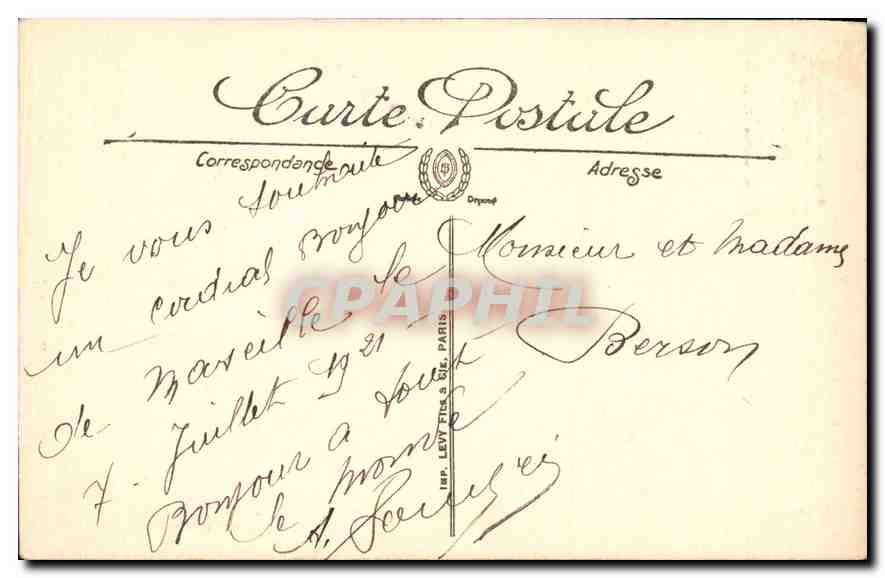 Carte Postale
Correspondance
Adresse
Déposé
Je vous souhaite
un cordial Bonjour
de Marseille le
7 Juillet 1921
Bonjour à tout
le monde
A.
Monsieur et Madame
Berson
IMP. LEVY FILS & CIE, PARIS
CPAPHIL